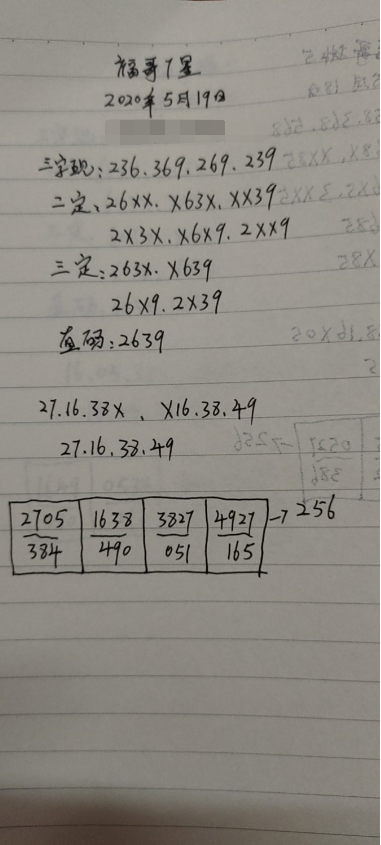 福哥7星
2020年5月19日
三字现:236.369.269.239
二定、26XX.X63X.XX39
2X3X.X6X9.2XX9
三定:263X.X639
26X9.2X39
直码:2639
27.16.38X、X16.38.49
27.16.38.49
2705 1638 3827 4927 → 256
384 490 051 165